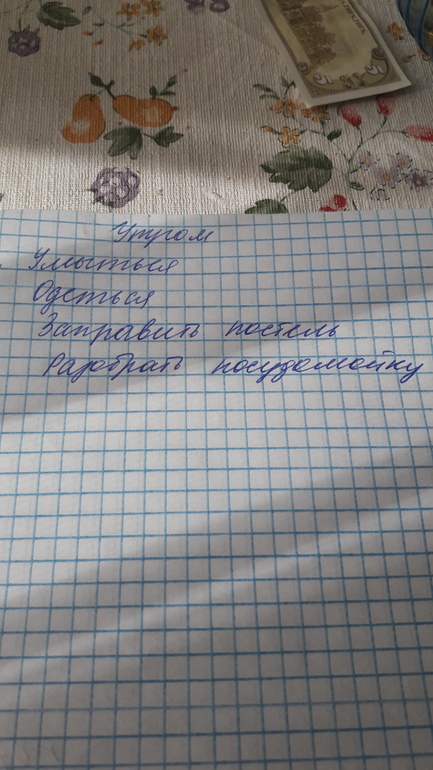 Утром
Умыться
Одеться
Заправить постель
Разобрать посудомойку